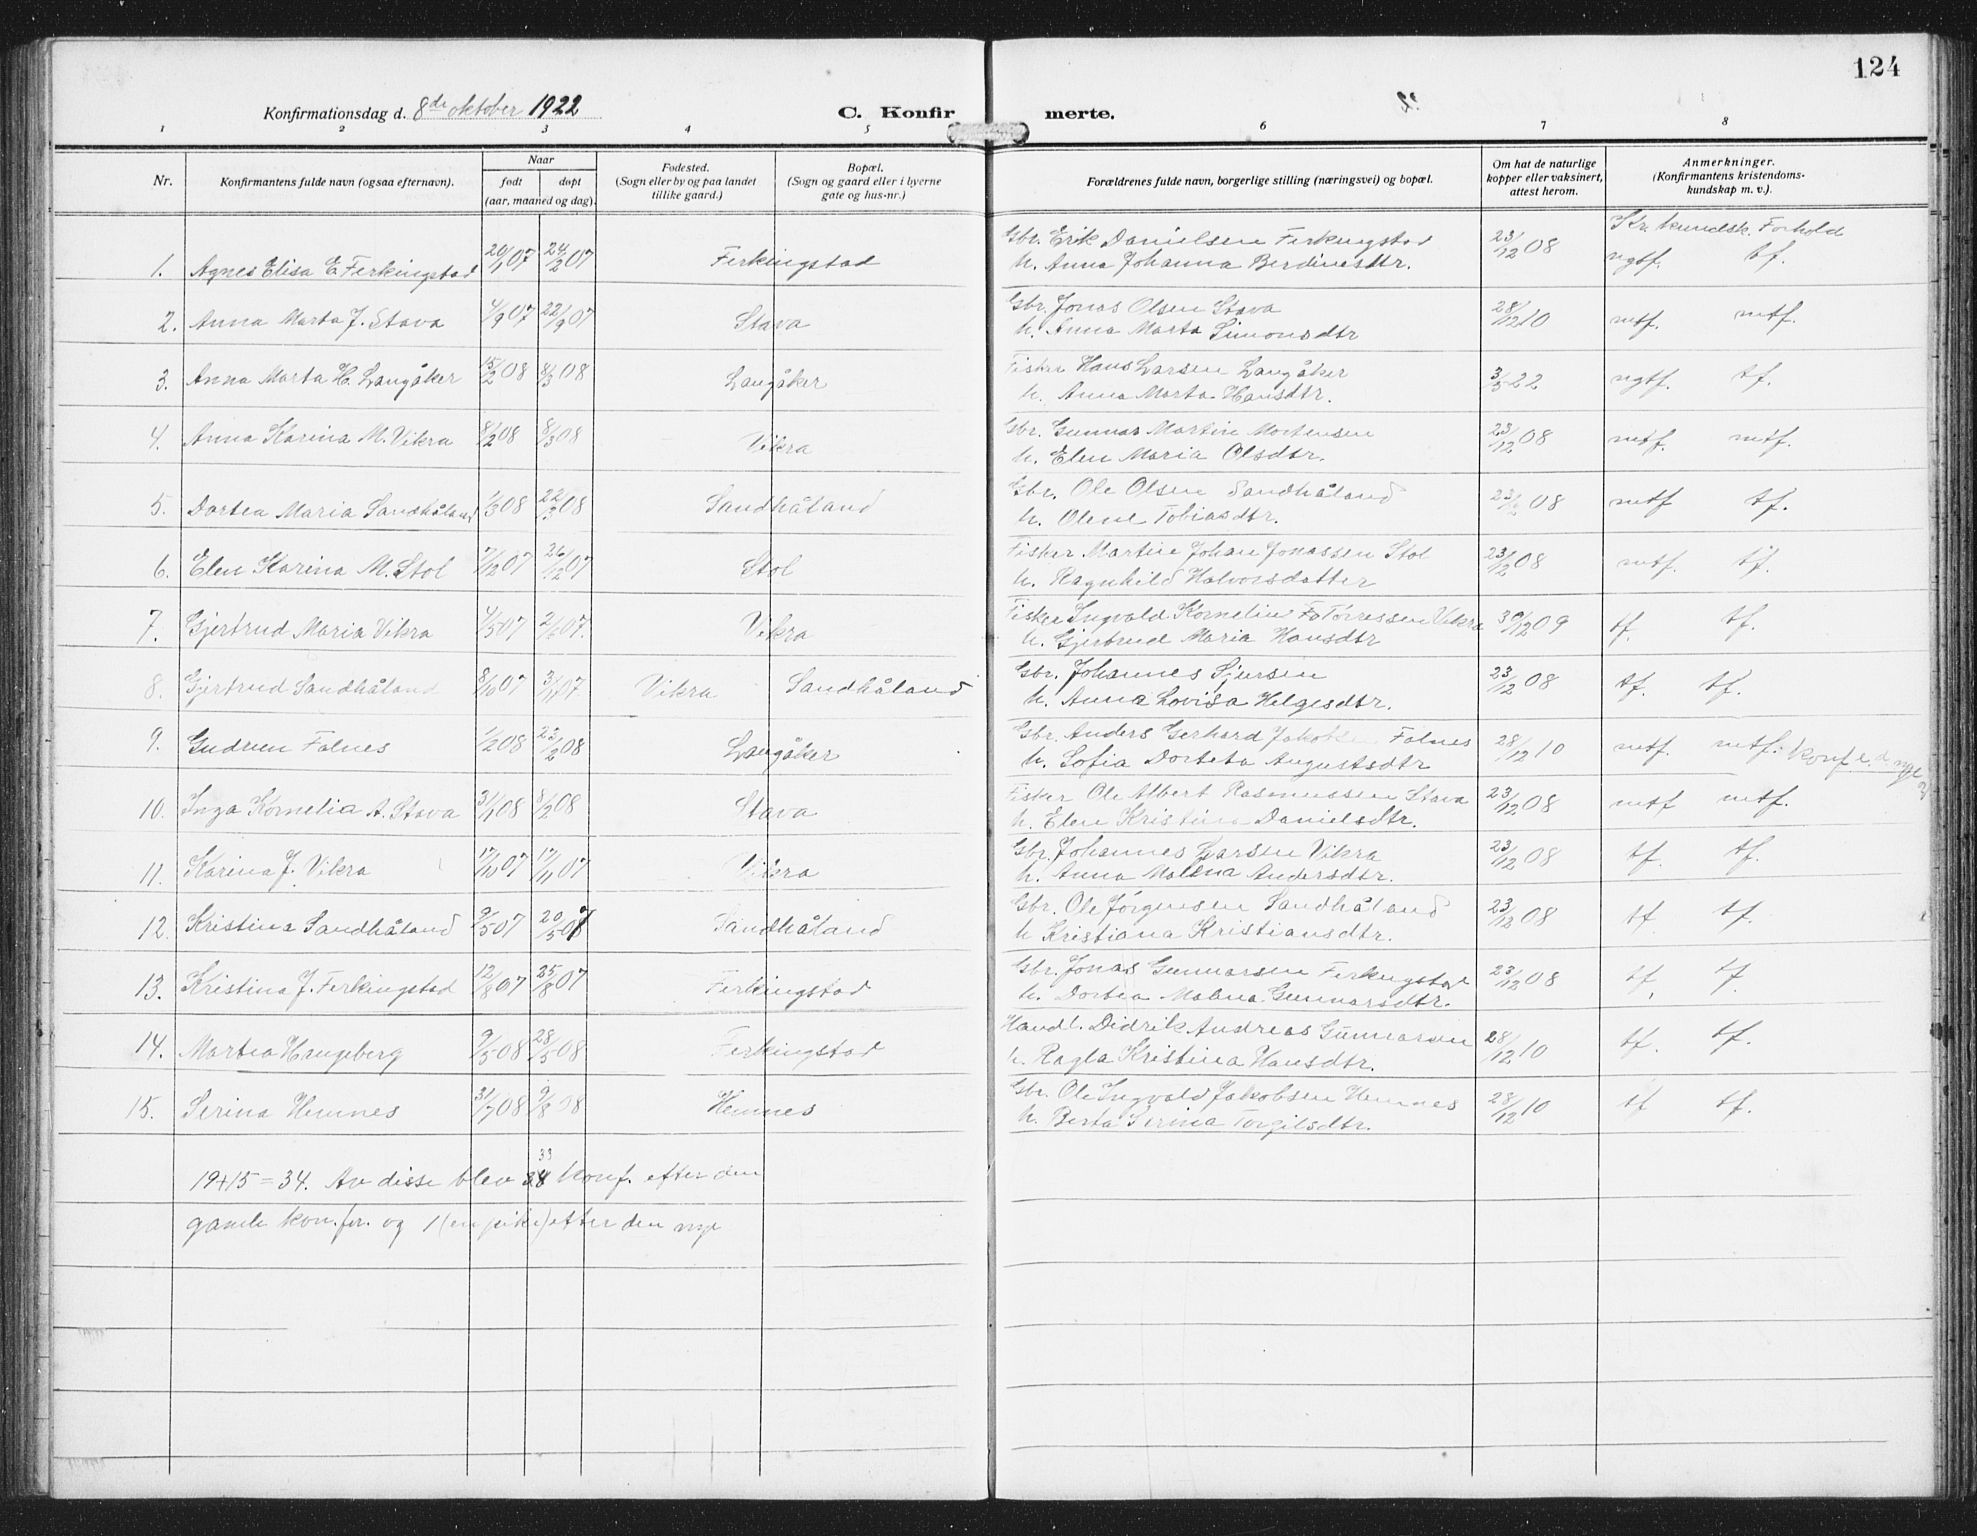 124
Konfirmationsdag d. 8de oktober 1922
C. Konfirmerte.
1 2 3 4 5 6 7 8
Nr. Konfirmantens fulde navn (ogsaa efternavn). Naar født døpt (aar, maaned og dag). Fødested. (Sogn eller by og paa landet tillike gaard.) Bopæl. (Sogn og gaard eller i byerne gate og hus-nr.) Forældrenes fulde navn, borgerlige stilling (næringsvei) og bopæl. Om hat de naturlige kopper eller vaksinert, attest herom. Anmerkninger. (Konfirmantens kristendomskundskap m. v.).
Kr. kundsk. Forhold
1. Agnes Elisa E. Ferkingstad 20/1 07 24/2 07 Ferkingstad Gbr. Erik Danielsen Ferkingstad 23/12 08 mgtf. tf.
h. Anna Johanna Berdinesdtr.
2. Anna Marta J. Stava 4/9 07 22/9 07 Stava Gbr. Jonas Olsen Stava 28/12 10 mtf. mtf.
h. Anna Marta Simonsdtr
3. Anna Marta H. Langåker 15/2 08 8/3 08 Langåker Fisker Hans Larsen Langåker 3/5 22 mgtf. tf.
h. Anna Marta Hansdtr.
4. Anna Karina M. Vikra 8/2 08 8/3 08 Vikra Gbr. Gunnar Martin Mortensen 23/12 08 mtf. mtf.
h. Elen Maria Olsdtr.
5. Dortea Maria Sandhåland 1/3 08 22/3 08 Sandhåland Gbr. Ole Olsen Sandhåland 23/12 08 mtf tf.
h. Olene Tobiasdtr.
6. Elen Karina M. Stol 7/12 07 26/12 07 Stol Fisker Martin Johan Jonassen Stol 23/12 08 mtf. tf.
h. Ragnhild Halvorsdatter
7. Gjertrud Maria Vikra 4/5 07 2/6 07. Vikra Fisker Ingvald Kornelius Torressen Vikra 30/12 09 tf. tf.
h. Gjertrud Maria Hansdtr
8. Gjertrud Sandhåland 8/10 07 3/11 07 Vikra Sandhåland Gbr. Johannes Sjursen 23/12 08 tf. tf.
h. Anna Lovisa Helgesdtr.
9. Gudrun Falnes 1/2 08 23/2 08 Langåker Gbr. Anders Gerhard Jakobsen Falnes 28/12 10 mtf. mtf. konf. e. d. nye
h. Sofia Dorteta Augustsdtr
10. Inga Kornelia A. Stava 31/1 08 8/2 08 Stava Fisker Ole Albert Rasmussen Stava 23/12 08 mtf mtf.
h. Elen Kristina Danielsdtr.
11. Karina J. Vikra 17/10 07 17/11 07 Vikra Gbr. Johannes Larsen Vikra 23/12 08 tf. tf.
h. Anna Malena Andersdtr.
12. Kristina Sandhåland 9/5 07 20/5 07 Sandhåland Gbr. Ole Jørgensen Sandhåland 23/12 08 tf. tf.
h Kristiana Kristiansdtr.
13. Kristina J. Ferkingstad 12/8 07 25/8 07 Ferkingstad Gbr. Jonas Gunnarsen Ferkingstad 23/12 08 tf. tf.
h. Dortea Malena Gunnarsdtr.
14. Martea Haugeberg 9/5 08 28/5 08 Ferkingstad Handl. Didrik Andreas Gunnarsen 28/12 10 tf. tf.
h. Ragla Kristina Hansdtr.
15. Serina Hemnes 31/7 08 9/8 08 Hemnes Gbr. Ole Ingvald Jakobsen Hemnes 28/12 10 tf tf.
h. Berta Serina Torgilsdtr.
33
19+15 = 34. Av disse blev konf. efter den
gamle konf.for. og 1 (en pike) efter den nye